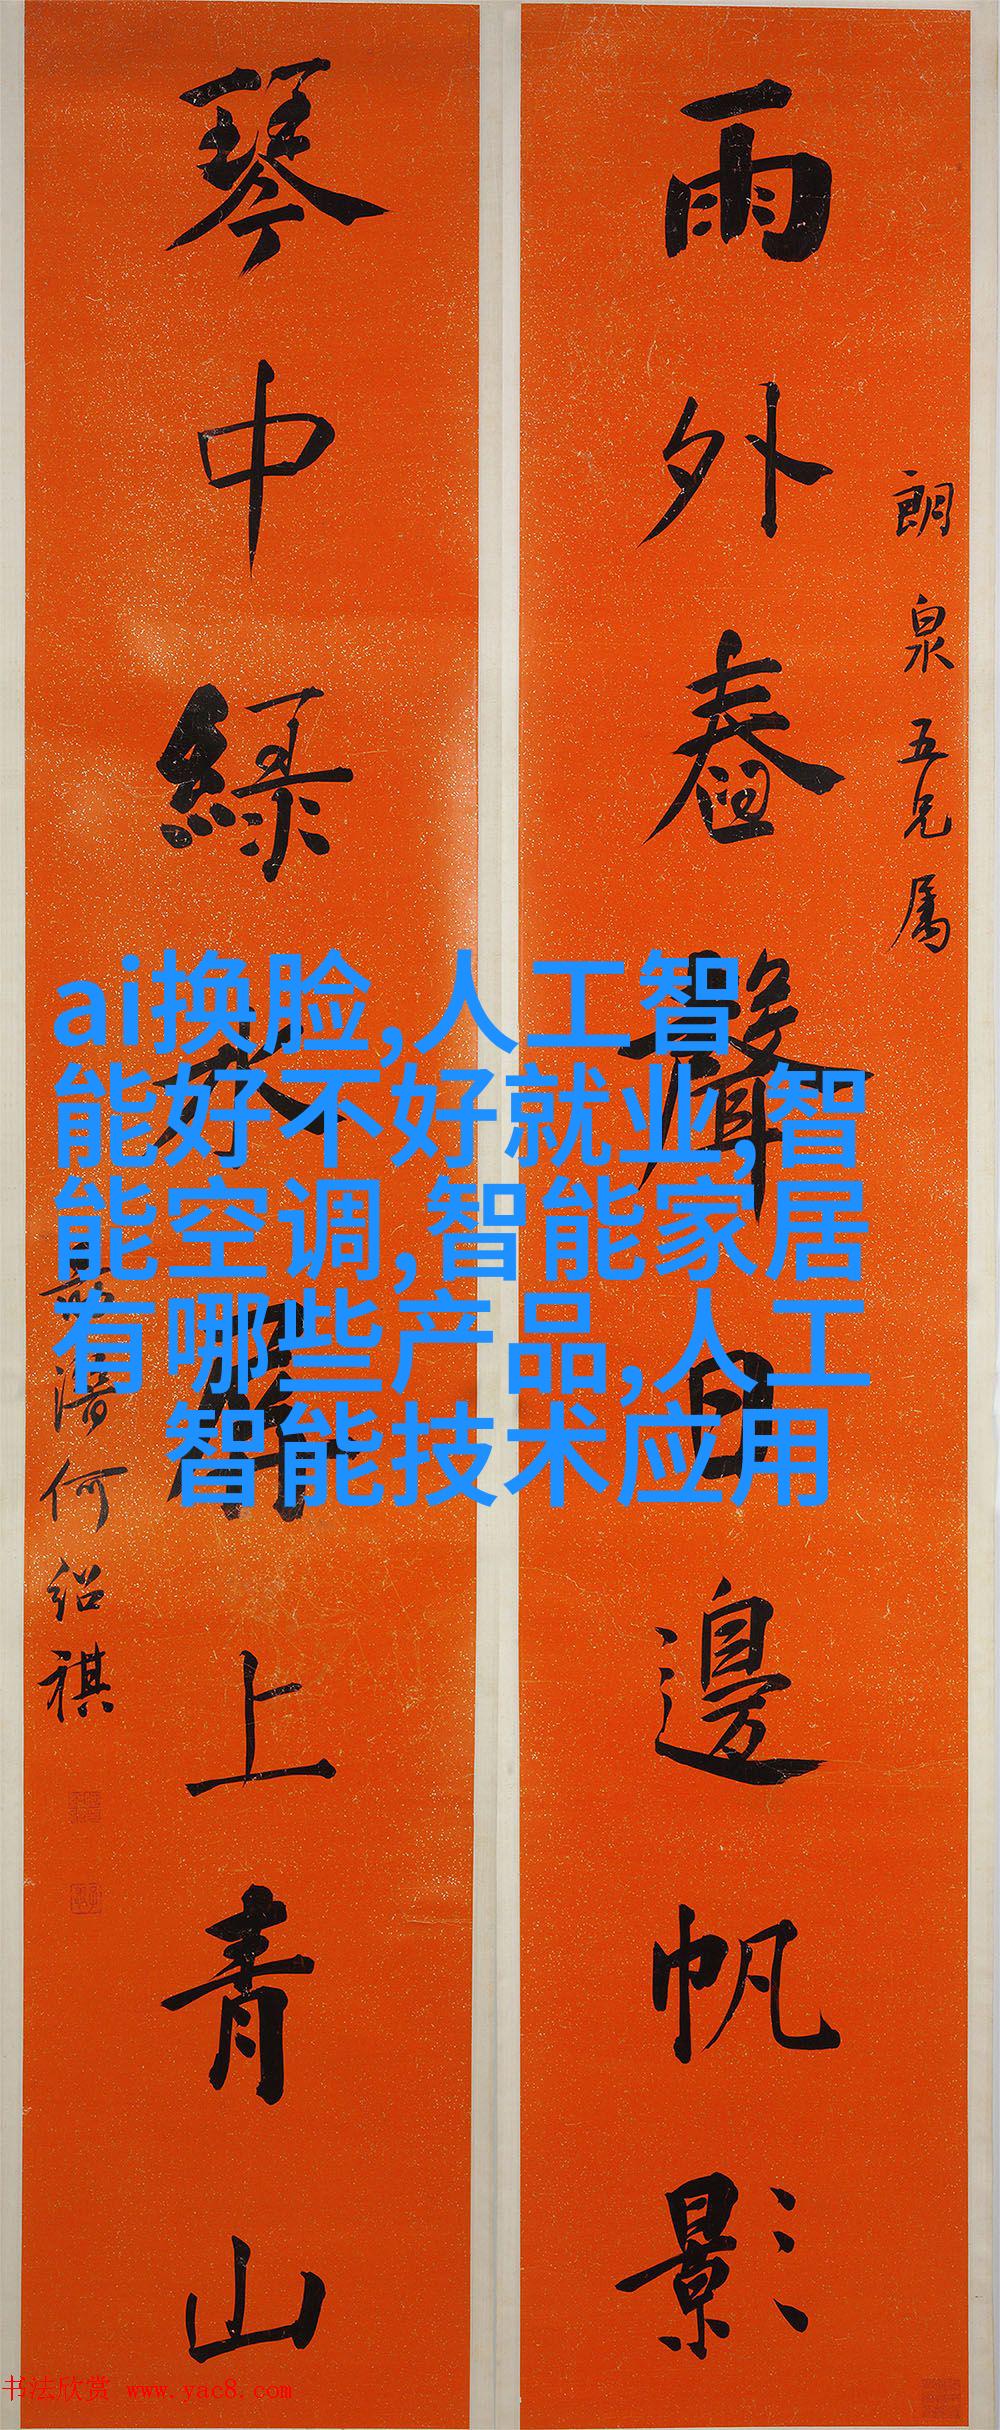 朗泉五兄属
雨外舂聲日邊帆影
琴中綠水屏上青山
何紹祺
ai换脸,人工智
能好不好就业,智
能空调,智能家居
有哪些产品,人工
智能技术应用
书法欣赏 www.yac8.com